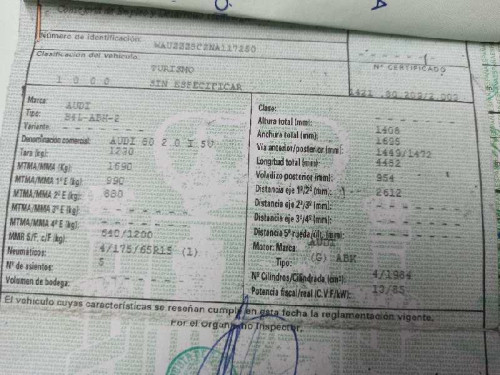 Número de identificación: WAUZZZ8CZNA117260
Clasificación del vehículo:
TURISMO
1 0 0 0 SIN ESPECIFICAR
Nº CERTIFICADO
Marca: AUDI
Tipo: B4L-ABK-2
Variante:
Denominación comercial: AUDI 80 2.0 I 5V
Tara (kg): 1270
MTMA/MMA (Kg): 1690
MTMA/MMA 1º E (kg): 990
MTMA/MMA 2º E (kg): 880
MTMA/MMA 3º E (kg):
MTMA/MMA 4º E (kg):
MMR S/F. c/F (kg): 540/1200
Neumáticos: 4/175/65R15 (1)
Nº de asientos: 5
Volumen de bodega:
Clase:
Altura total (mm): 1408
Anchura total (mm): 1695
Vía anterior/posterior (mm): 1449/1472
Longitud total (mm): 4482
Voladizo posterior (mm): 954
Distancia eje 1º/2º (mm): 2612
Distancia eje 2º/3º (mm):
Distancia eje 3º/4º (mm):
Distancia 5ª rueda/últ. (mm):
Motor: Marca: AUDI
Tipo: (G) ABK
Nº Cilindros/Cilindrada (cm³): 4/1984
Potencia fiscal/real (C.V.F/kW): 13/85
El vehículo cuyas características se reseñan cumple en esta fecha la reglamentación vigente.
Por el Organismo Inspector,